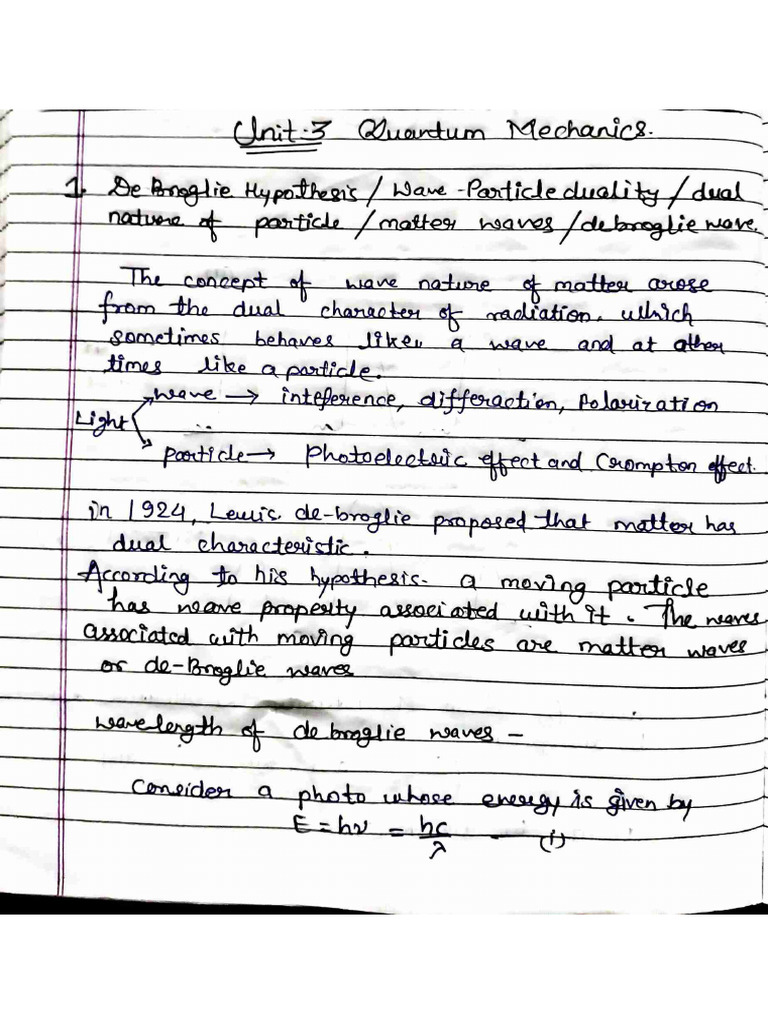 Unit:3 Quantum Mechanics.
1. De Broglie Hypothesis / Wave-Particle duality / dual
nature of particle / matter waves / debroglie wave.
The concept of wave nature of matter arose
from the dual character of radiation. which
sometimes behaves like a wave and at other
times like a particle.
wave → inteference, differaction, Polarization
Light
particle → Photoelectric effect and Crompton effect.
in 1924, Lewis de-broglie proposed that matter has
dual characteristic.
According to his hypothesis- a moving particle
has wave property associated with it. The waves
associated with moving particles are matter waves
or de-Broglie waves
wavelength of de broglie waves –
Consider a photo whose energy is given by
E = hν = hc/λ - (i)